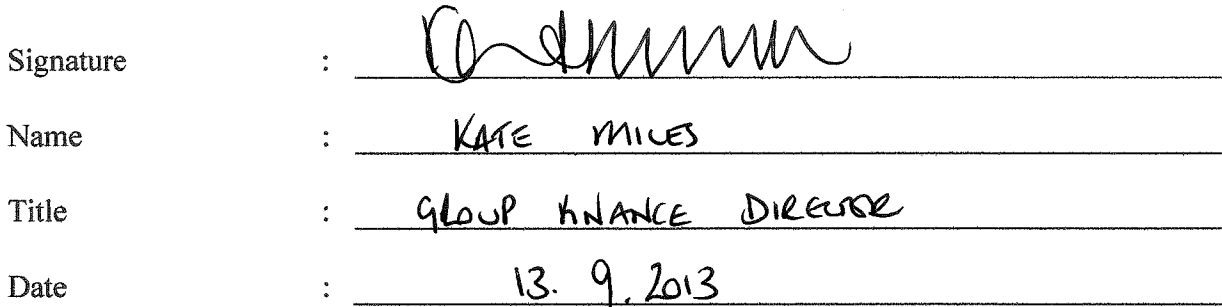 Signature :
Name : KATE MILES
Title : GROUP FINANCE DIRECTOR
Date : 13. 9. 2013